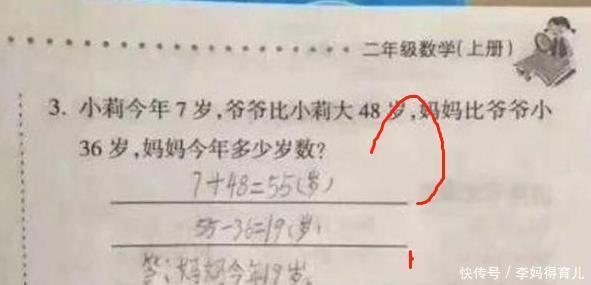 二年级数学(上册)
3. 小莉今年7岁,爷爷比小莉大48岁,妈妈比爷爷小
36岁,妈妈今年多少岁数?
7+48=55(岁)
55-36=19(岁)
答:妈妈今年19岁。
快传号/李妈得育儿